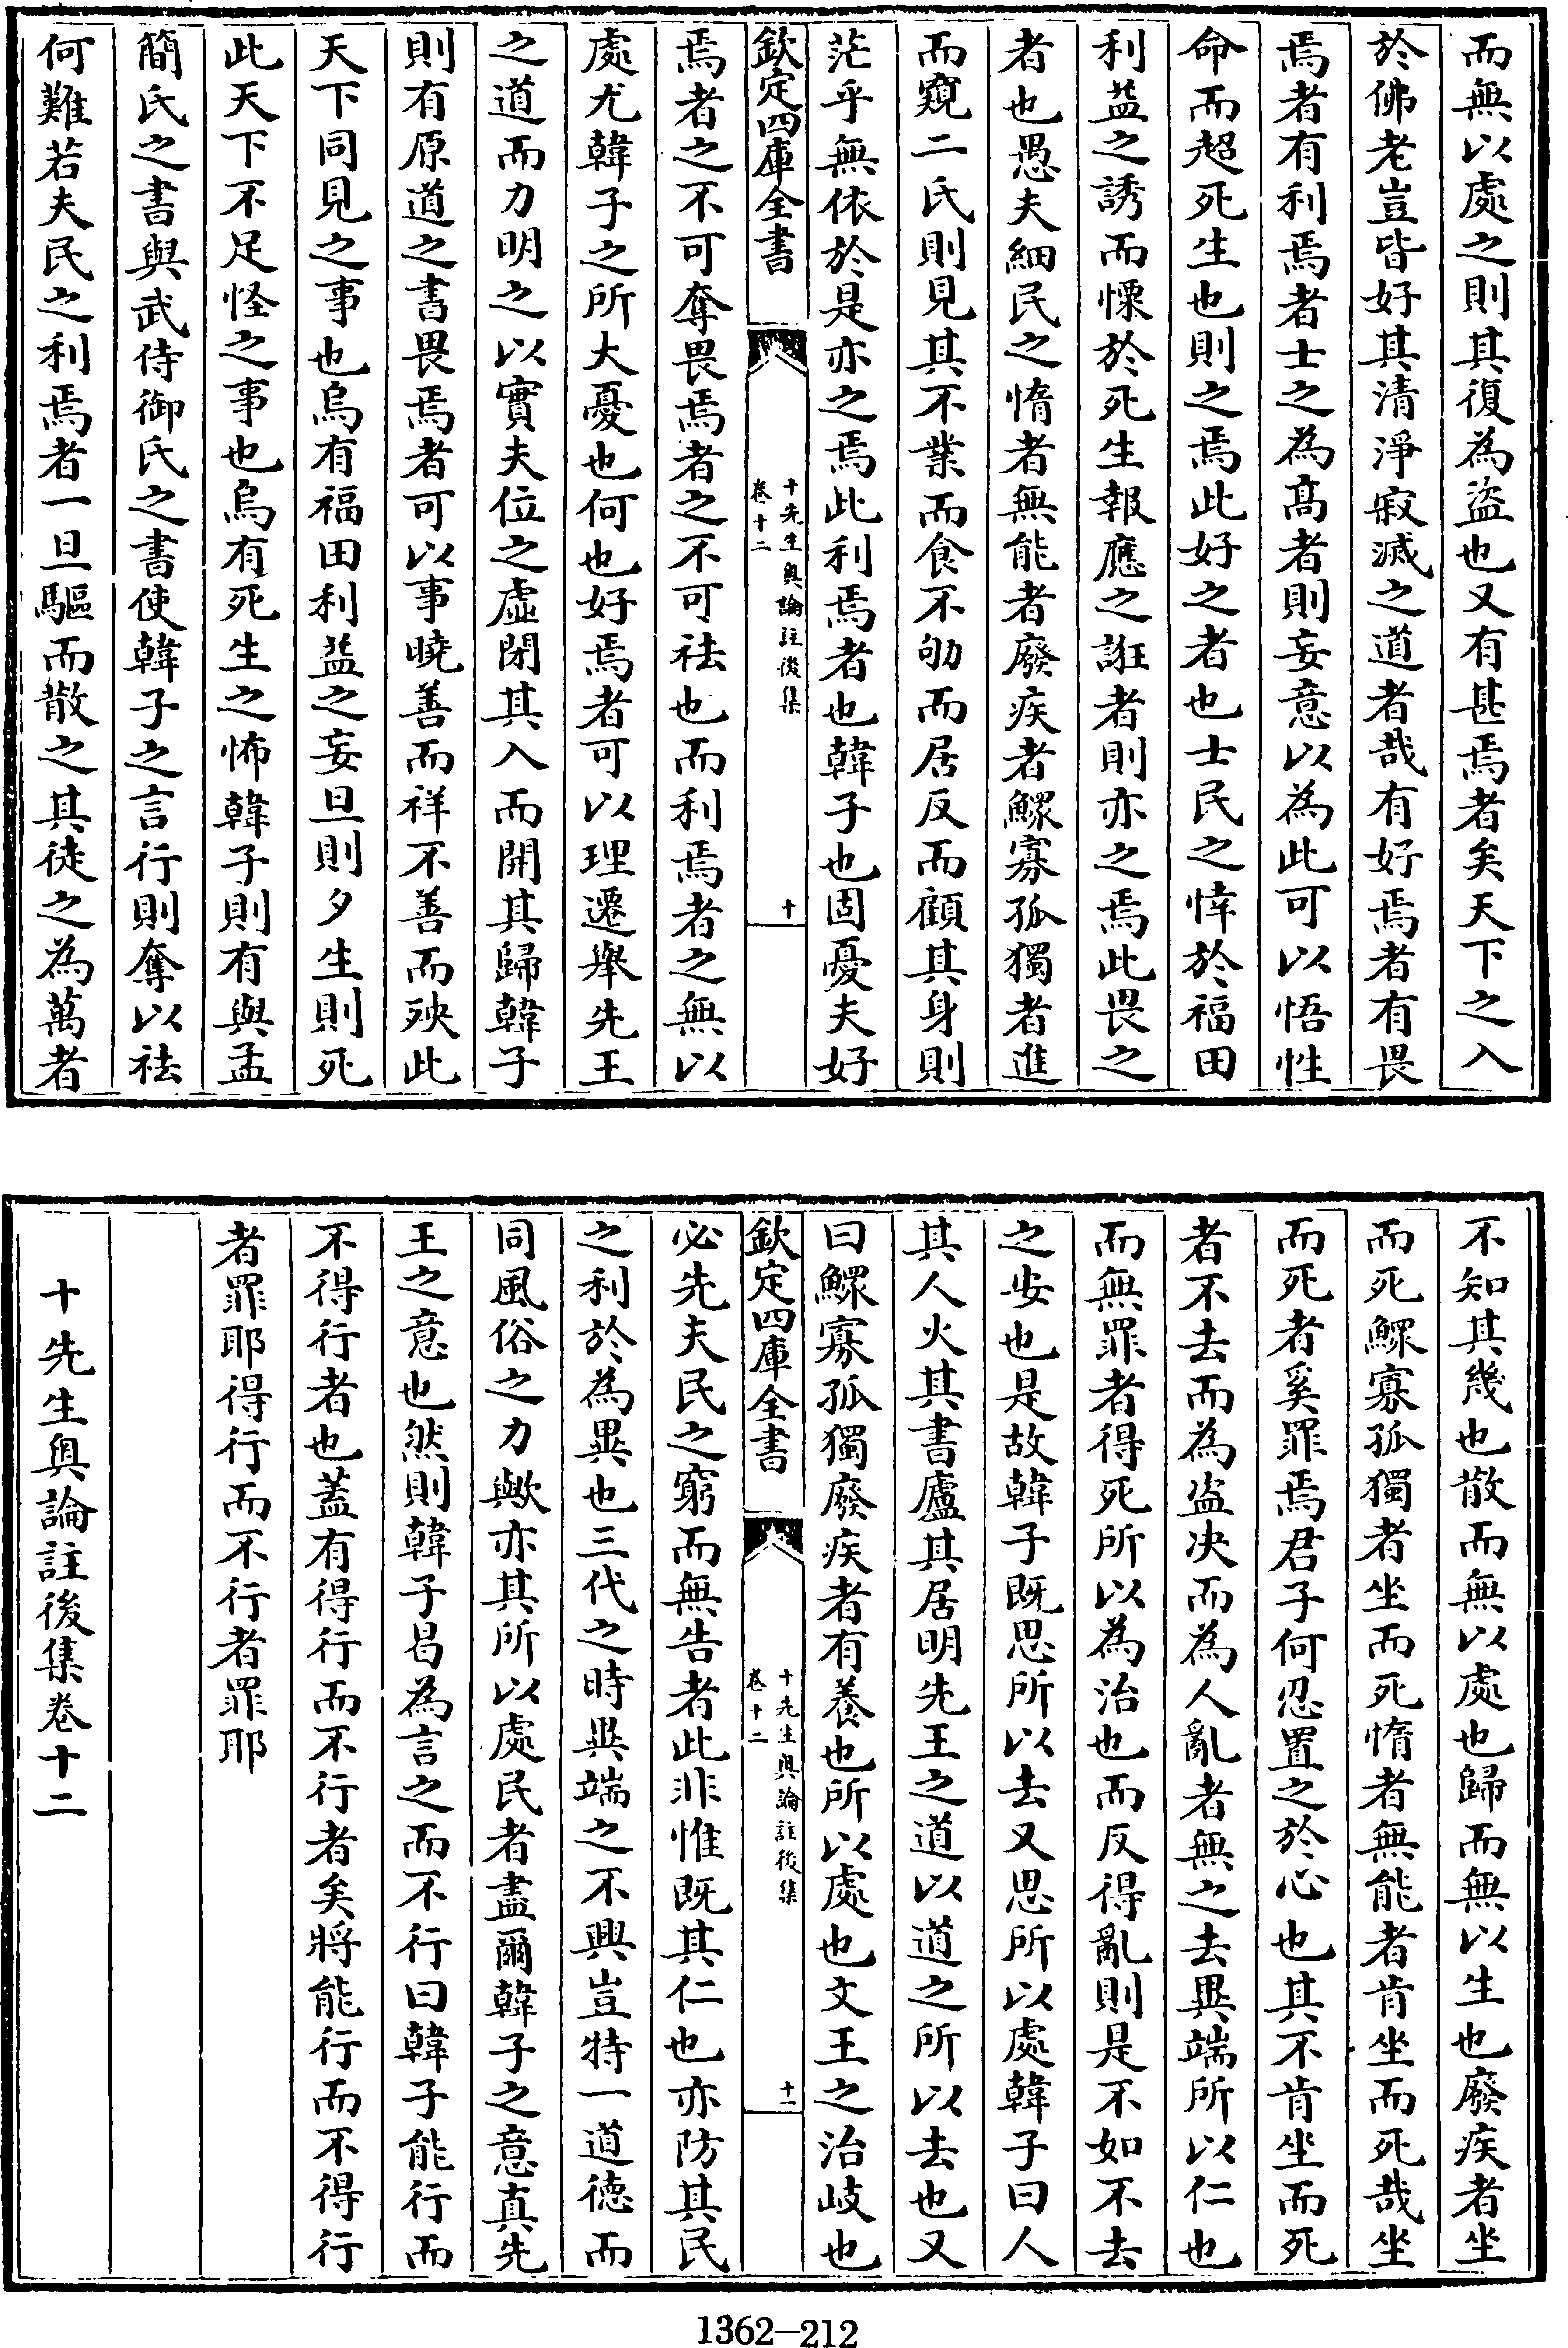 而無以處之則其復為盜也又有甚焉者矣天下之入
於佛老豈皆好其清淨寂滅之道者哉有好焉者有畏
焉者有利焉者士之為髙者則妄意以為此可以悟性
命而超死生也則之焉此好之者也士民之悻於福田
利益之誘而慄於死生報應之誑者則亦之焉此畏之
者也愚夫細民之惰者無能者廢疾者鰥寡孤獨者進
而窺二氏則見其不業而食不劬而居反而顧其身則
茫乎無依於是亦之焉此利焉者也韓子也固憂夫好
欽定四庫全書
十先生奥論註後集
卷十二
十
焉者之不可奪畏焉者之不可祛也而利焉者之無以
處尤韓子之所大憂也何也好焉者可以理遷舉先王
之道而力明之以實夫位之虛閉其入而開其歸韓子
則有原道之書畏焉者可以事曉善而祥不善而殃此
天下同見之事也烏有福田利益之妄旦則夕生則死
此天下不足怪之事也烏有死生之怖韓子則有與孟
簡氏之書與武侍御氏之書使韓子之言行則奪以祛
何難若夫民之利焉者一旦驅而散之其徒之為萬者
不知其幾也散而無以處也歸而無以生也廢疾者坐
而死鰥寡孤獨者坐而死惰者無能者肯坐而死哉坐
而死者奚罪焉君子何忍置之於心也其不肯坐而死
者不去而為盜决而為人亂者無之去異端所以仁也
而無罪者得死所以為治也而反得亂則是不如不去
之安也是故韓子既思所以去又思所以處韓子曰人
其人火其書廬其居明先王之道以道之所以去也又
曰鰥寡孤獨廢疾者有養也所以處也文王之治岐也
欽定四庫全書
十先生奥論註後集
卷十二
十一
必先夫民之窮而無告者此非惟既其仁也亦防其民
之利於為異也三代之時異端之不興豈特一道徳而
同風俗之力歟亦其所以處民者盡爾韓子之意真先
王之意也然則韓子曷為言之而不行曰韓子能行而
不得行者也蓋有得行而不行者矣將能行而不得行
者罪耶得行而不行者罪耶
十先生奥論註後集卷十二
1362-212